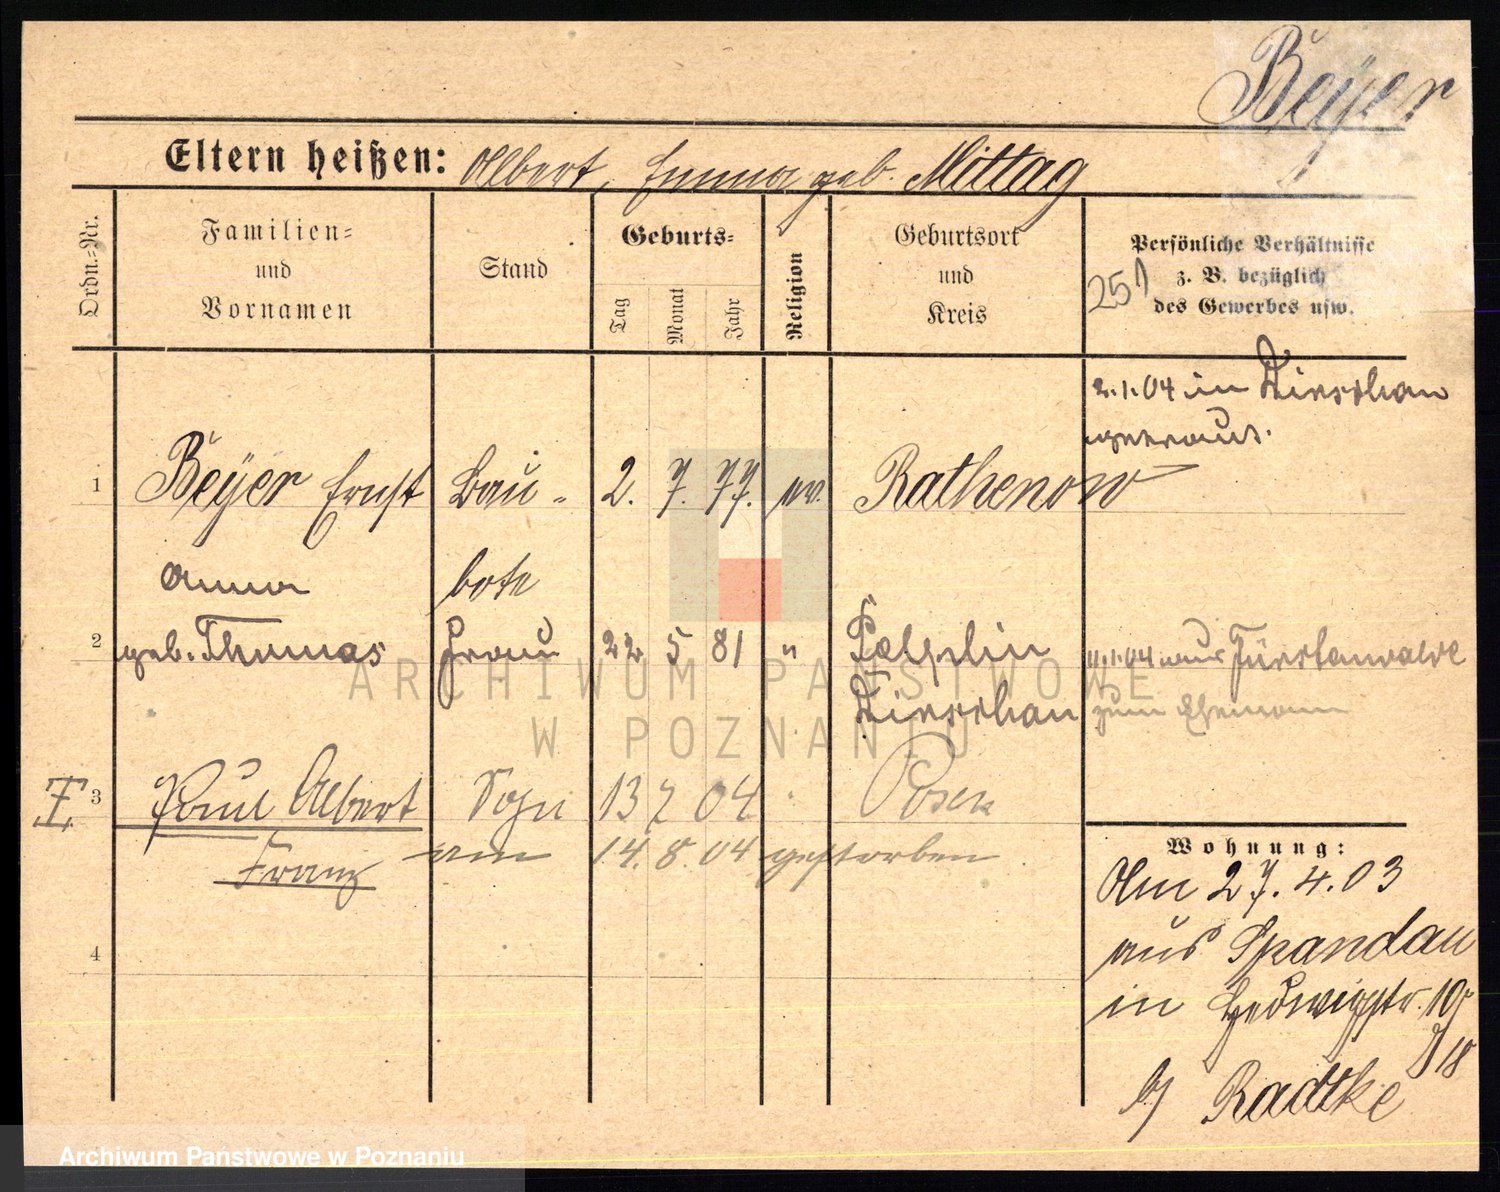 Beyer
Eltern heißen: Albert, Emma geb. Mittag
Ordn.=Nr.
Familien=
und
Vornamen
Stand
Geburts=
Tag
Monat
Jahr
Religion
Geburtsort
und
Kreis
Persönliche Verhältnisse
z. B. bezüglich
des Gewerbes usw.
251
2.1.04 in Dirschau
getraut.
1 Beyer Ernst Bau- 2. 7. 77. ev. Rathenow
Anna bote
2 geb. Thomas Frau 22 5 81 " Pelplin
Dirschau
11.1.04 aus Fürstenwalde
zum Ehemann
3 Paul Albert Sohn 13 7 04 Posen
Franz am 14. 8. 04 gestorben
4
Wohnung:
Am 27.4.03
aus Spandau
in Hedwigstr. 10
b/ Radtke
ARCHIWUM PAŃSTWOWE
W POZNANIU
Archiwum Państwowe w Poznaniu